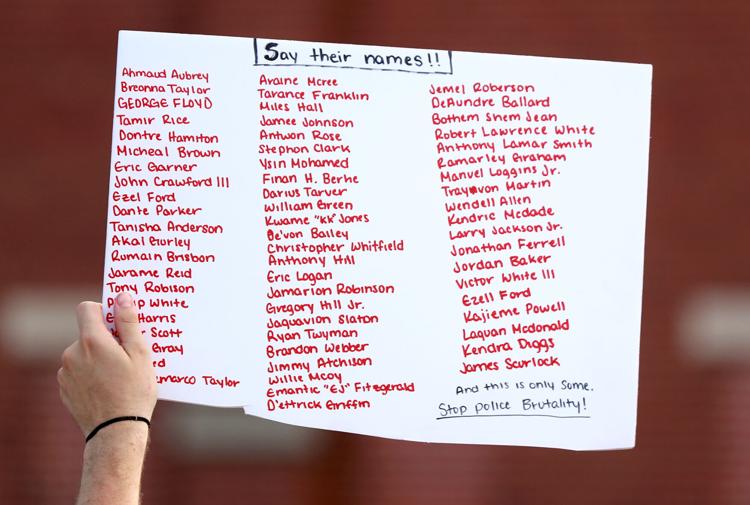 Say their names!!
Ahmaud Aubrey
Breonna Taylor
GEORGE FLOYD
Tamir Rice
Dontre Hamilton
Micheal Brown
Eric Garner
John Crawford III
Ezel Ford
Dante Parker
Tanisha Anderson
Akai Gurley
Rumain Brisbon
Jarame Reid
Tony Robison
White
Harris
Scott
Gray
Taylor
Araine Mcree
Tarance Franklin
Miles Hall
Jamee Johnson
Antwon Rose
Stephon Clark
Ysin Mohamed
Finan H. Berhe
Darius Tarver
William Green
Kwame "KK" Jones
De'von Bailey
Christopher Whitfield
Anthony Hill
Eric Logan
Jamarion Robinson
Gregory Hill Jr.
Jaquavion Slaton
Ryan Twyman
Brandon Webber
Jimmy Atchison
Willie Mcoy
Emantic "EJ" Fitzgerald
D'ettrick Griffin
Jemel Roberson
DeAundre Ballard
Bothem Shem Jean
Robert Lawrence White
Anthony Lamar Smith
Ramarley Graham
Manuel Loggins Jr.
Trayvon Martin
Wendell Allen
Kendric Mcdade
Larry Jackson Jr.
Jonathan Ferrell
Jordan Baker
Victor White III
Ezell Ford
Kajieme Powell
Laquan Mcdonald
Kendra Diggs
James Scurlock
And this is only some.
Stop police Brutality!